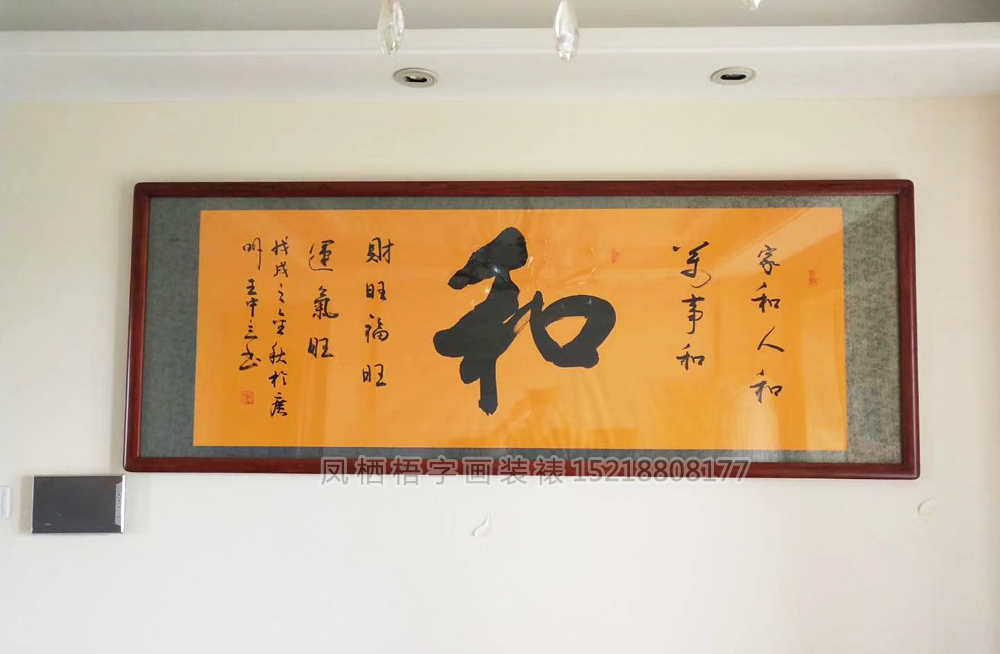 家和人和
萬事和
和
財旺福旺
運氣旺
戊戌之金秋於廣
州王中立书
凤栖梧字画装裱15218808177